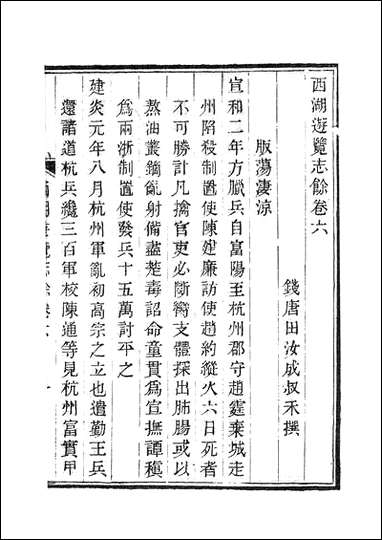 西湖遊覽志餘卷六
錢唐田汝成叔禾撰
版蕩淒涼
宣和二年方臘兵自富陽至杭州郡守趙霆棄城走
州陷殺制置使陳建廉訪使趙約縱火六日死者
不可勝計凡擒官吏必斷臠支體探出肺腸或以
熬油叢鏑亂射備盡楚毒詔命童貫為宣撫譚稹
為兩浙制置使發兵十五萬討平之
建炎元年八月杭州軍亂初高宗之立也遣勤王兵
還諸道杭兵纔三百軍校陳通等見杭州富實甲